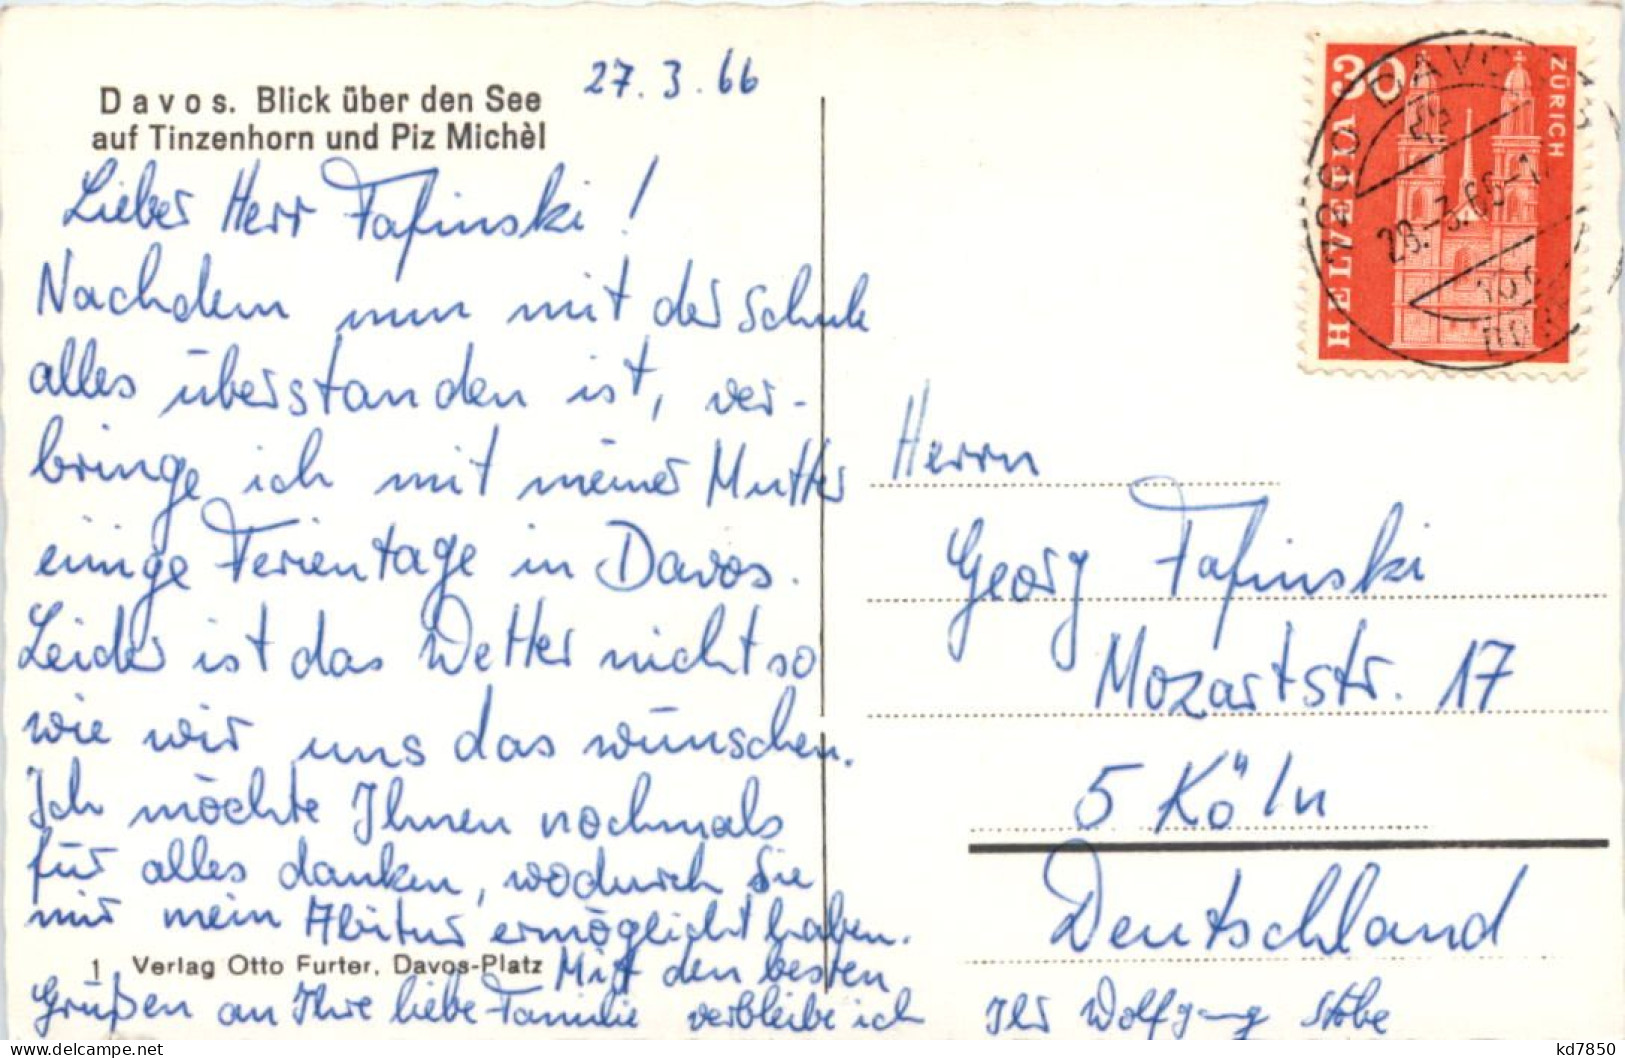 Davos. Blick über den See
auf Tinzenhorn und Piz Michèl
27.3.66
Lieber Herr Fafinski!
Nachdem nun mit der Schule
alles überstanden ist, ver-
bringe ich mit meiner Mutter
einige Ferientage in Davos.
Leider ist das Wetter nicht so
wie wir uns das wünschen.
Ich möchte Ihnen nochmals
für alles danken, wodurch Sie
mir mein Abitur ermöglicht haben.
1 Verlag Otto Furter, Davos-Platz
Mit den besten
Grüßen an Ihre liebe Familie verbleibe ich
Ihr Wolfgang Stobe
30
HELVETIA
ZÜRICH
DAVOS
28.-3.66-17
Herrn
Georg Fafinski
Mozartstr. 17
5 Köln
Deutschland
kd7850